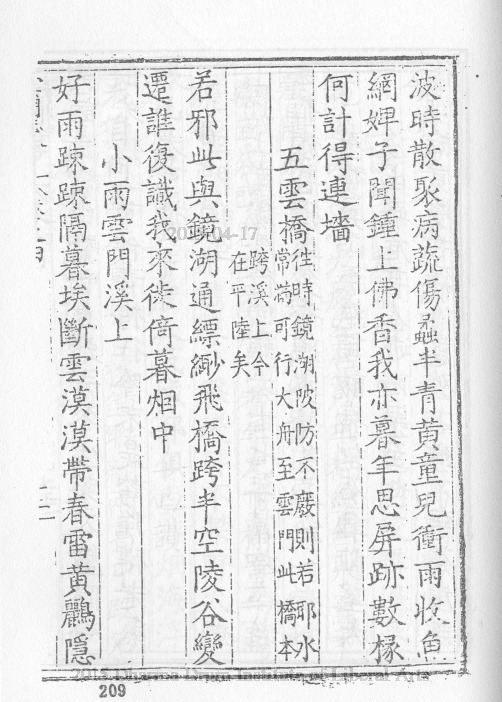 波時散聚病蔬傷蟲半青黃童兒衝雨收魚
網婢子聞鍾上佛香我亦暮年思屏跡數椽
何計得連墻
五雲橋
往時鏡湖陂防不廢則若耶水
常満可行大舟至雲門此橋本
跨溪上今
在平陸矣
若邪此與鏡湖通縹緲飛橋跨半空陵谷變
遷誰復識我來徙倚暮烟中
小雨雲門溪上
好雨踈踈隔暮埃斷雲漠漠帶春雷黃鸝隱
209